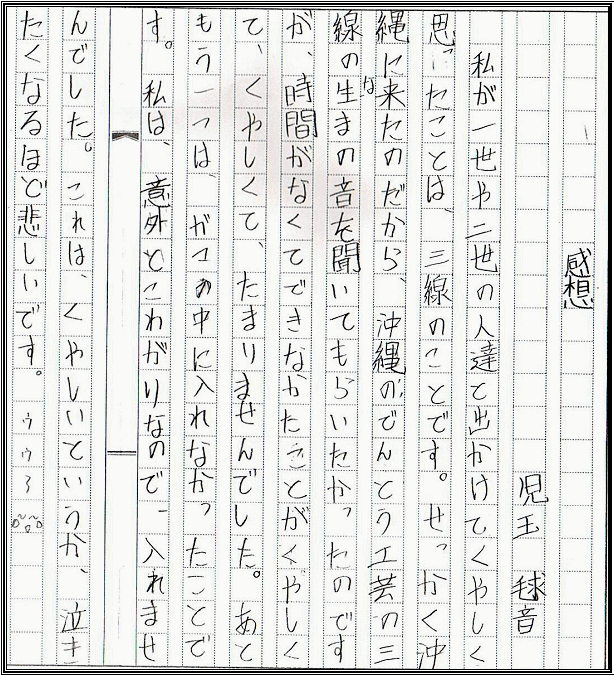 感想
児玉 球音
私が一世や二世の人達と出かけてくやしく
思ったことは、三線のことです。せっかく沖
縄に来たのだから、沖縄のでんとう工芸の三
線の生まの音を聞いてもらいたかったのです
が、時間がなくてできなかたことがくやしく
て、くやしくて、たまりませんでした。あと
もう一つは、がまの中に入れなかったことで
す。私は、意外とこわがりなので、入れませ
んでした。これは、くやしいというか、泣き
たくなるほど悲しいです。ゥゥ